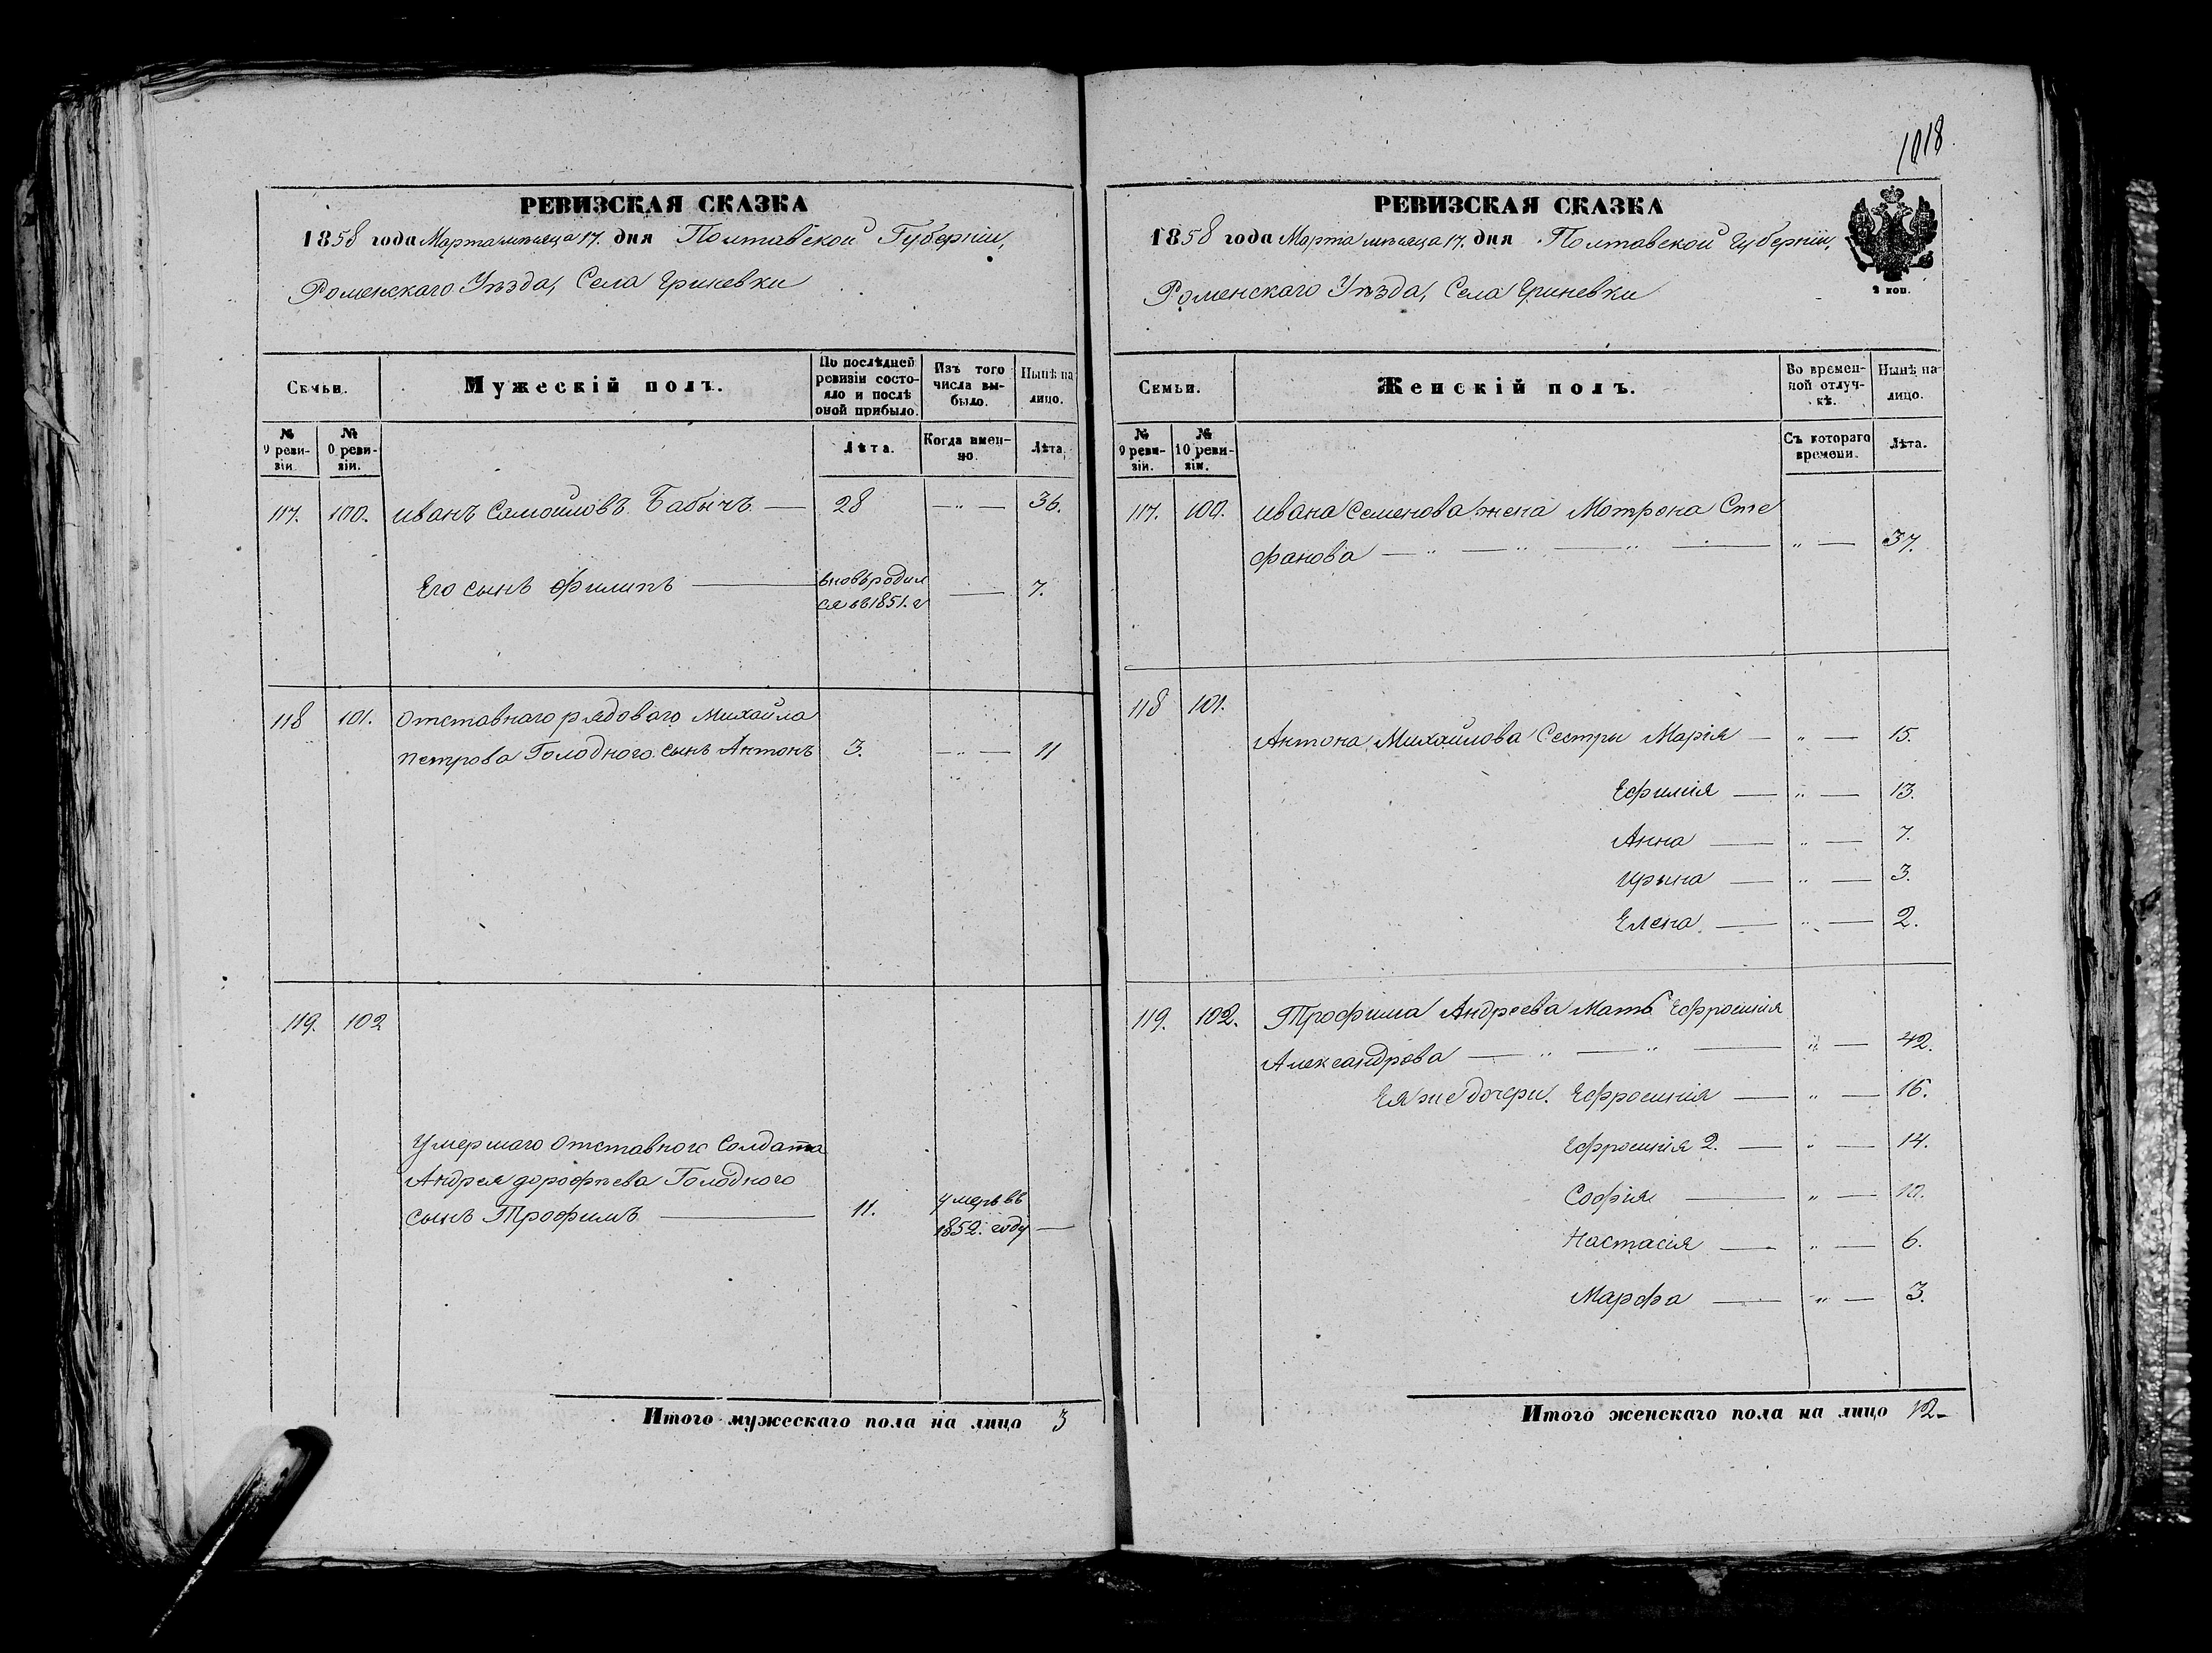 РЕВИЗСКАЯ СКАЗКА
1858 года Марта мѣсяца 17. дня Полтавской Губерніи,
Роменскаго Уѣзда, Села Гриневки
Семьи.
Мужескій полъ.
По послѣдней
ревизіи состо-
яло и послѣ
оной прибыло.
Изъ того
числа вы-
было.
Нынѣ на
лицо.
№
9 реви-
зіи.
№
0 реви-
зіи.
Лѣта.
Когда имен-
но.
Лѣта.
117. 100. Иванъ Самойловъ Бабычъ — 28 — „ — 36.
Его сынъ Филипъ — вновь родил
ся въ 1851. г — 7.
118 101. Отставнаго рядоваго Михайла
Петрова Голодного сынъ Антонъ 3. — „ — 11
119. 102
Умершаго Отставного Солдата
Андрея Дорофѣева Голодного
сынъ Трофимъ — 11. умеръ въ
1852. году —
Итого мужескаго пола на лицо 3
1018
РЕВИЗСКАЯ СКАЗКА
1858 года Марта мѣсяца 17. дня Полтавской Губерніи,
Роменскаго Уѣзда, Села Гриневки
2 коп.
Семьи.
Женскій полъ.
Во времен-
ной отлуч-
кѣ.
Нынѣ на
лицо.
№
9 реви-
зіи.
№
10 реви-
зіи.
Съ котораго
времени.
Лѣта.
117. 100. Ивана Семенова жена Мотрона Сте
фанова — „ — „ — „ — „ — 37.
118 101.
Антона Михайлова Сестры Марія — „ — 15.
Ефимія — „ — 13.
Анна — „ — 7.
Ирына — „ — 3.
Елена — „ — 2.
119. 102. Трофима Андреева Мать Ефросинія
Александрова — „ — „ — „ — 42.
Ея же дочери. Ефросинія — „ — 16.
Ефросинія 2. — „ — 14.
Софія — „ — 10.
Настасія — „ — 6.
Марфа — „ — 3.
Итого женскаго пола на лицо 12-